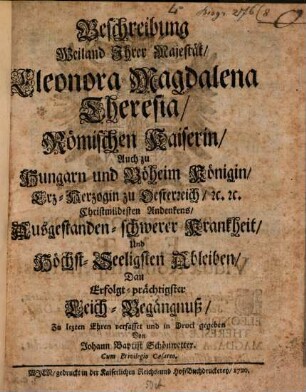 Beschreibung
Weiland Ihrer Majestät/
Eleonora Magdalena
Theresia/
Römischen Kaiserin/
Auch zu
Hungarn und Böheim Königin/
Ertz-Hertzogin zu Oesterreich/ ꝛc. ꝛc.
Christmildesten Andenkens/
Ausgestanden-schwerer Krankheit/
Und
Höchst-Seeligsten Ableiben/
Dan
Erfolgt-prächtigster
Leich-Begängnuß/
Zu lezten Ehren verfasset und in Druck gegeben
Von
Johann Baptist Schönwetter.
Cum Privilegio Cæsareo.
WIEN/ gedruckt in der Kaiserlichen Reichs und Hof-Buchdruckerey/ 1720.